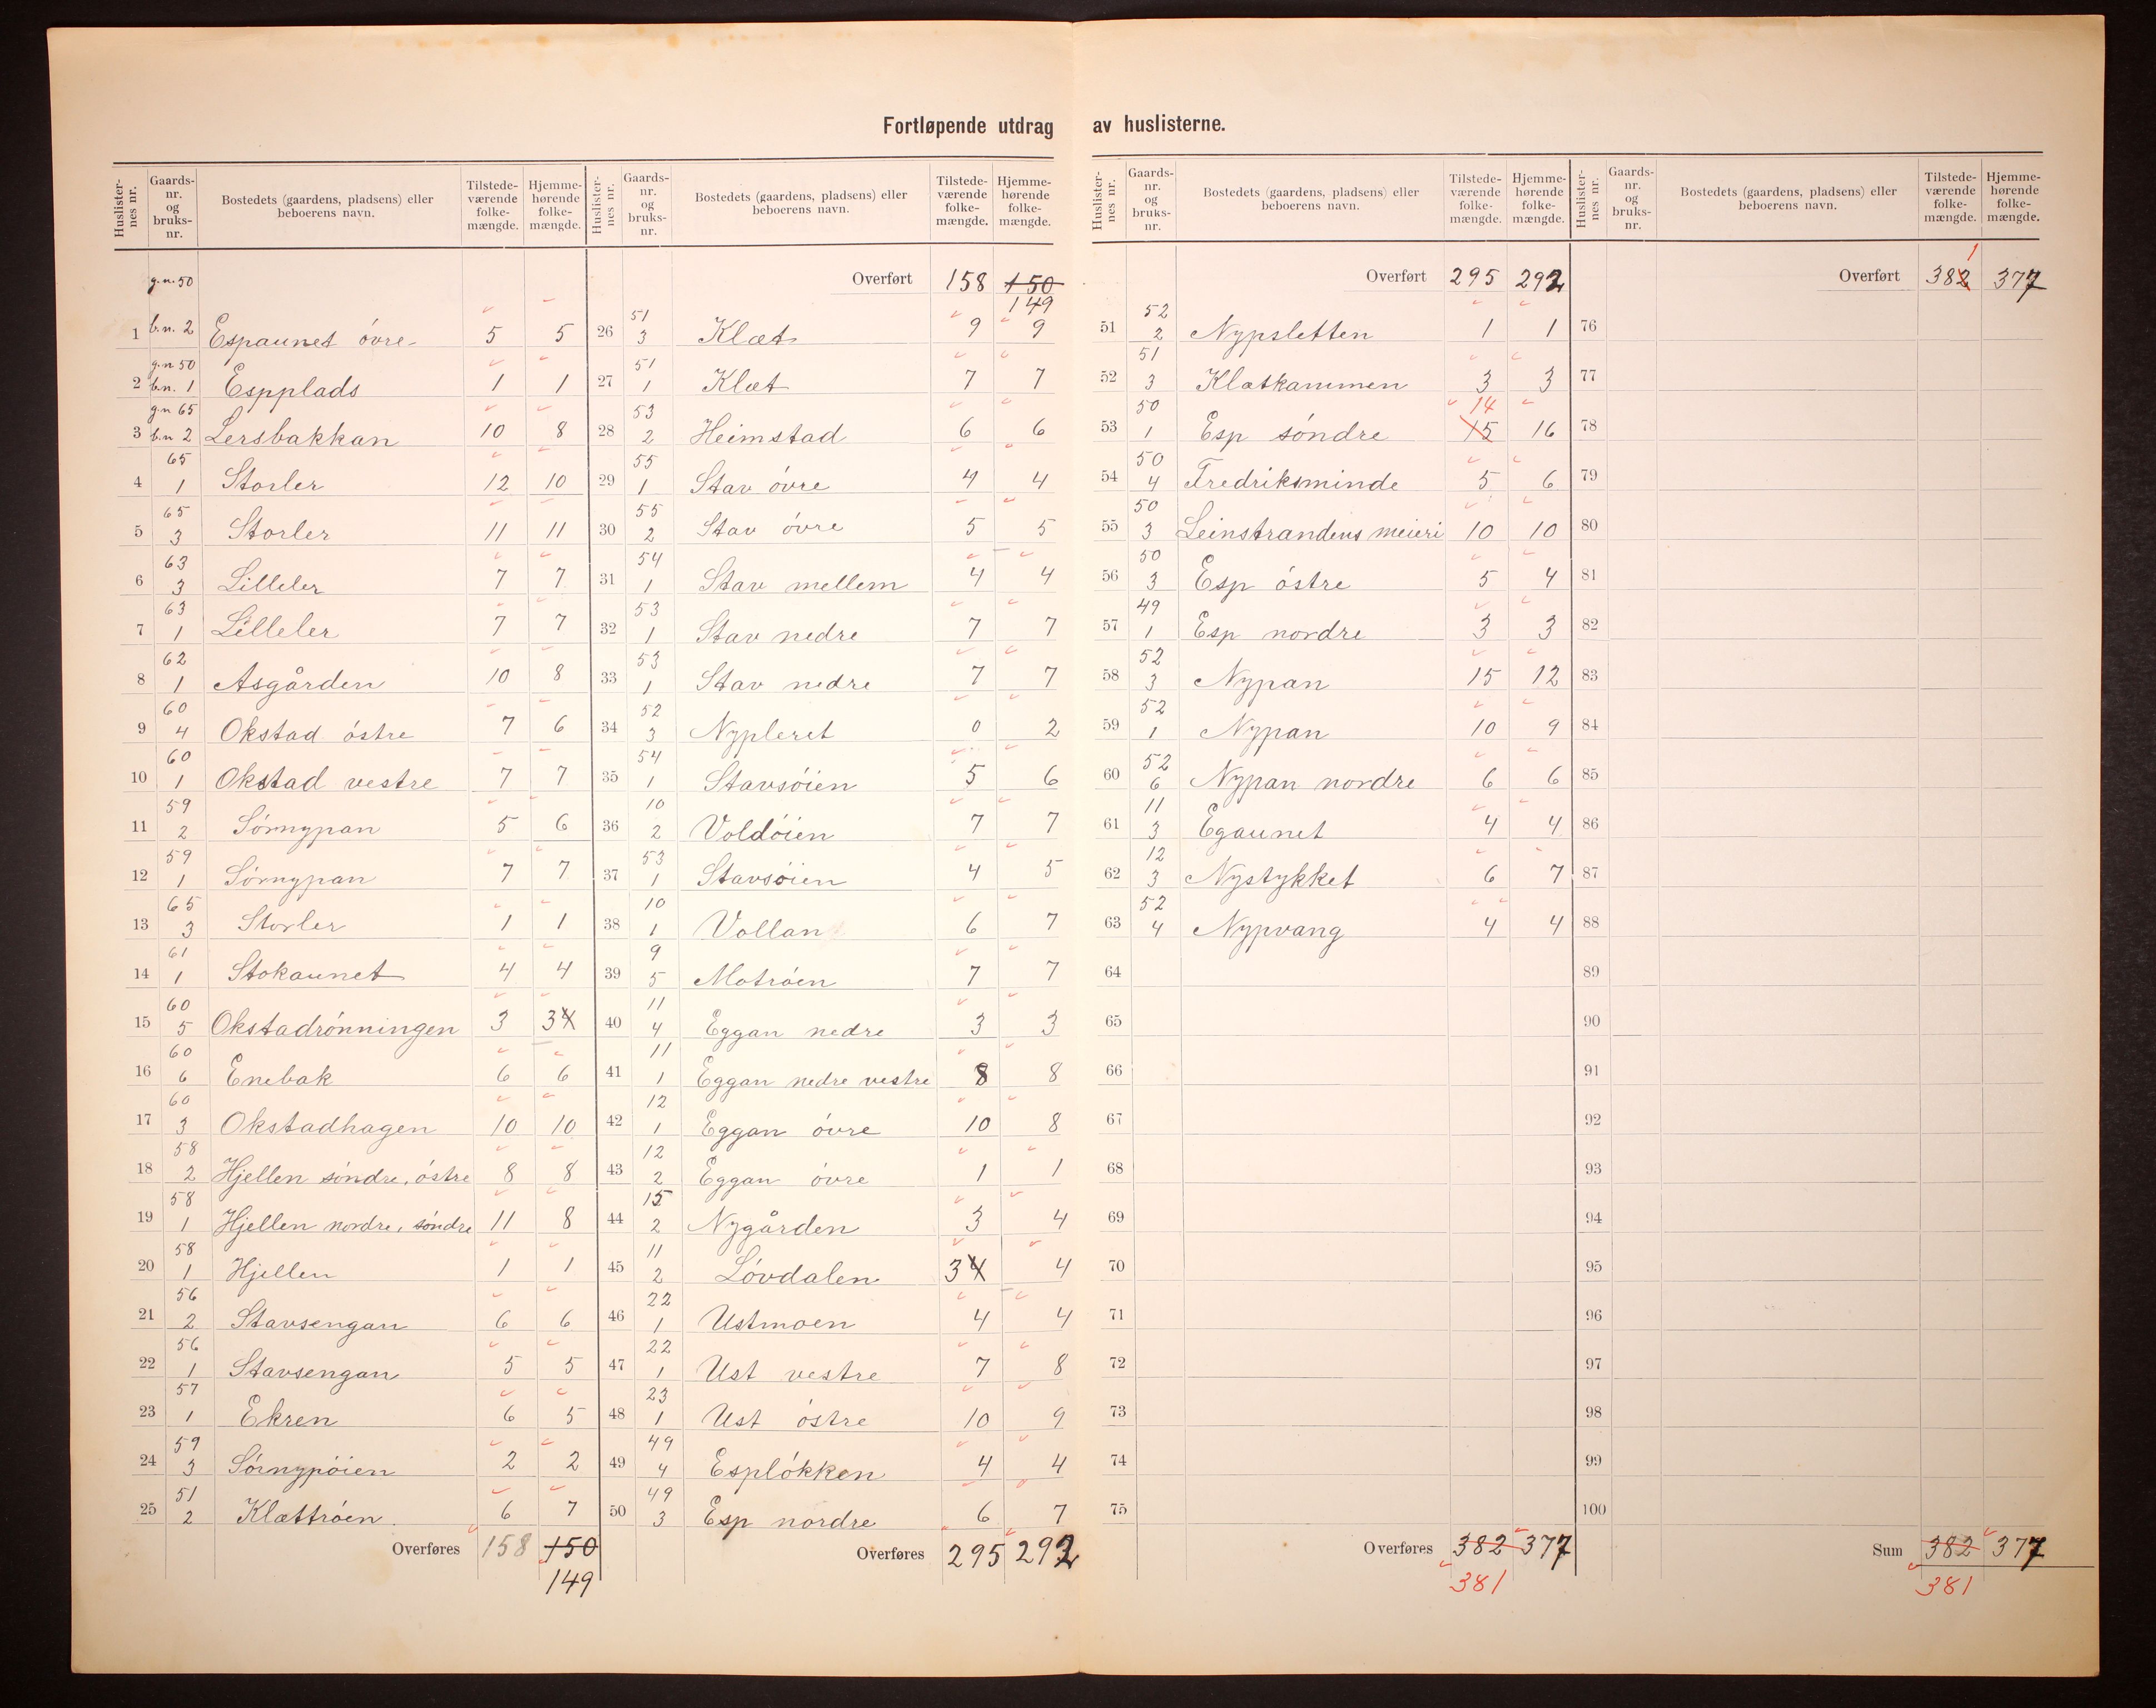 Fortløpende utdrag av huslisterne.
Huslisternes nr. | Gaards-nr. og bruks-nr. | Bostedets (gaardens, pladsens) eller beboerens navn. | Tilstedeværende folkemængde. | Hjemmehørende folkemængde.
1 | g.n. 50 b.n. 2 | Espaunet övre | 5 | 5
2 | g.n 50 b.n. 1 | Espplads | 1 | 1
3 | g.n 65 b.n 2 | Lersbakkan | 10 | 8
4 | 65 1 | Storler | 12 | 10
5 | 65 3 | Storler | 11 | 11
6 | 63 3 | Lilleler | 7 | 7
7 | 63 1 | Lilleler | 7 | 7
8 | 62 1 | Asgården | 10 | 8
9 | 60 4 | Okstad östre | 7 | 6
10 | 60 1 | Okstad vestre | 7 | 7
11 | 59 2 | Sörnypan | 5 | 6
12 | 59 1 | Sörnypan | 7 | 7
13 | 65 3 | Storler | 1 | 1
14 | 61 1 | Stokaunet | 4 | 4
15 | 60 5 | Okstadrönningen | 3 | 3 4
16 | 60 6 | Enebak | 6 | 6
17 | 60 3 | Okstadhagen | 10 | 10
18 | 58 2 | Hjellen söndre, östre | 8 | 8
19 | 58 1 | Hjellen nordre, söndre | 11 | 8
20 | 58 1 | Hjellen | 1 | 1
21 | 56 2 | Stavsengan | 6 | 6
22 | 56 1 | Stavsengan | 5 | 5
23 | 57 1 | Ekren | 6 | 5
24 | 59 3 | Sörnypöien | 2 | 2
25 | 51 2 | Klættröen. | 6 | 7
Overføres | 158 | 150
149
Huslisternes nr. | Gaards-nr. og bruks-nr. | Bostedets (gaardens, pladsens) eller beboerens navn. | Tilstedeværende folkemængde. | Hjemmehørende folkemængde.
Overført | 158 | 150
149
26 | 51 3 | Klæt | 9 | 9
27 | 51 1 | Klæt | 7 | 7
28 | 53 2 | Heimstad | 6 | 6
29 | 55 1 | Stav övre | 4 | 4
30 | 55 2 | Stav övre | 5 | 5
31 | 54 1 | Stav mellem | 4 | 4
32 | 53 1 | Stav nedre | 7 | 7
33 | 53 1 | Stav nedre | 7 | 7
34 | 52 3 | Nypleret | 0 | 2
35 | 54 1 | Stavsöien | 5 | 6
36 | 10 2 | Voldöien | 7 | 7
37 | 53 1 | Stavsöien | 4 | 5
38 | 10 1 | Vollan | 6 | 7
39 | 9 5 | Motröen | 7 | 7
40 | 11 4 | Eggan nedre | 3 | 3
41 | 11 1 | Eggan nedre vestre | 8 | 8
42 | 12 1 | Eggan övre | 10 | 8
43 | 12 2 | Eggan övre | 1 | 1
44 | 15 2 | Nygården | 3 | 4
45 | 11 2 | Lövdalen | 3 4 | 4
46 | 22 1 | Ustmoen | 4 | 4
47 | 22 1 | Ust vestre | 7 | 8
48 | 23 1 | Ust östre | 10 | 9
49 | 49 4 | Esplökken | 4 | 4
50 | 49 3 | Esp nordre | 6 | 7
Overføres | 295 | 292
Huslisternes nr. | Gaards-nr. og bruks-nr. | Bostedets (gaardens, pladsens) eller beboerens navn. | Tilstedeværende folkemængde. | Hjemmehørende folkemængde.
Overført | 295 | 292
51 | 52 2 | Nypsletten | 1 | 1
52 | 51 3 | Klætkammen | 3 | 3
53 | 50 1 | Esp söndre | 15 14 | 16
54 | 50 4 | Fredriksminde | 5 | 6
55 | 50 3 | Leinstrandens meieri | 10 | 10
56 | 50 3 | Esp östre | 5 | 4
57 | 49 1 | Esp nordre | 3 | 3
58 | 52 3 | Nypan | 15 | 12
59 | 52 1 | Nypan | 10 | 9
60 | 52 6 | Nypan nordre | 6 | 6
61 | 11 3 | Egaunet | 4 | 4
62 | 12 3 | Nystykket | 6 | 7
63 | 52 4 | Nypvang | 4 | 4
64
65
66
67
68
69
70
71
72
73
74
75
Overføres | 382 | 377
381
Huslisternes nr. | Gaards-nr. og bruks-nr. | Bostedets (gaardens, pladsens) eller beboerens navn. | Tilstedeværende folkemængde. | Hjemmehørende folkemængde.
1
Overført | 382 | 377
76
77
78
79
80
81
82
83
84
85
86
87
88
89
90
91
92
93
94
95
96
97
98
99
100
Sum | 382 | 377
381